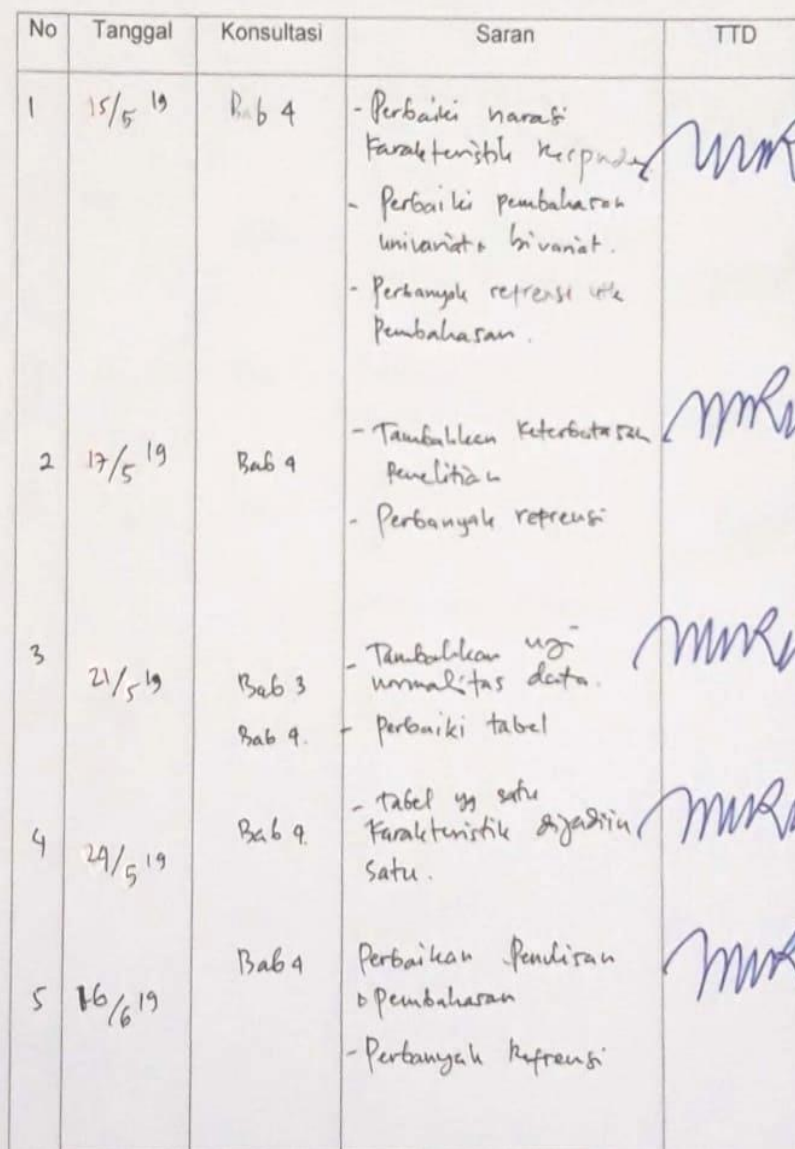 No Tanggal Konsultasi Saran TTD
1 15/5 19 Bab 4 - Perbaiki narasi
Karakteristik Respnden
- Perbaiki pembahasan
univariat & bivariat.
- Perbanyak refrensi utk
Pembahasan.
2 17/5 19 Bab 4 - Tambahkan Keterbatasan
Penelitian
- Perbanyak refrensi
3 21/5 19 Bab 3 - Tambahkan uji
normalitas data.
Bab 4. - Perbaiki tabel
4 24/5 19 Bab 4. - Tabel yg satu
Karakteristik dijadiin
satu.
5 16/6 19 Bab 4 Perbaikan Penulisan
& Pembahasan
- Perbanyak Refrensi